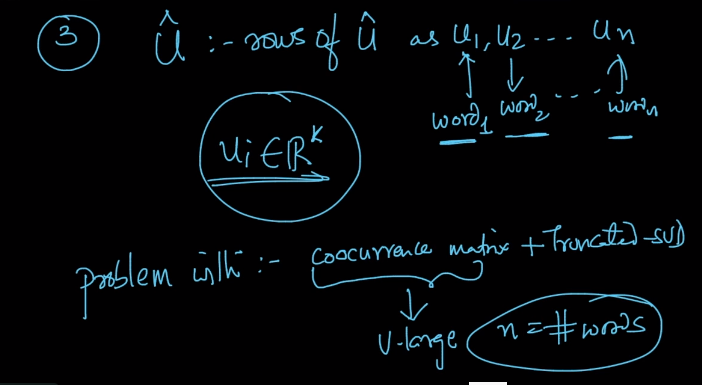 3 Û :- rows of Û as u1, u2 ... un
word1 word2 ... wordn
ui ∈ ℝ^k
problem with :- coocurrence matrix + Truncated-SVD
v-large n = # words